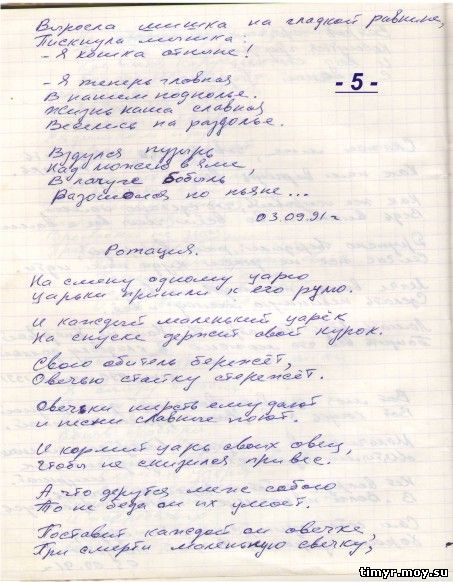 Выросла шишка на гладкой равнине,
Пискнула мышка:
- Я кошка отныне!
- Я теперь главная
В нашем подполье.
Жизнь наша славная
Веселись на раздолье.
- 5 -
Вздулся пузырь
Над лужею в яме,
В лачуге бобыль
Разошолся по пьяне...
03.09.91 г
Ротация.
На смену одному царю
Царьки пришли к его рулю.
И каждый маленький царёк
На спуске держит свой курок.
Свою обитель бережёт,
Овечью стайку стережёт.
Овечки шерсть ему дают
и песни славные поют.
И кормит царь своих овец,
Чтобы не снизился привес.
А что дерутся меж собою
То не беда он их умоет.
Поставит каждой он овечке,
При смерти маленькую свечку,
timyr-moy.su